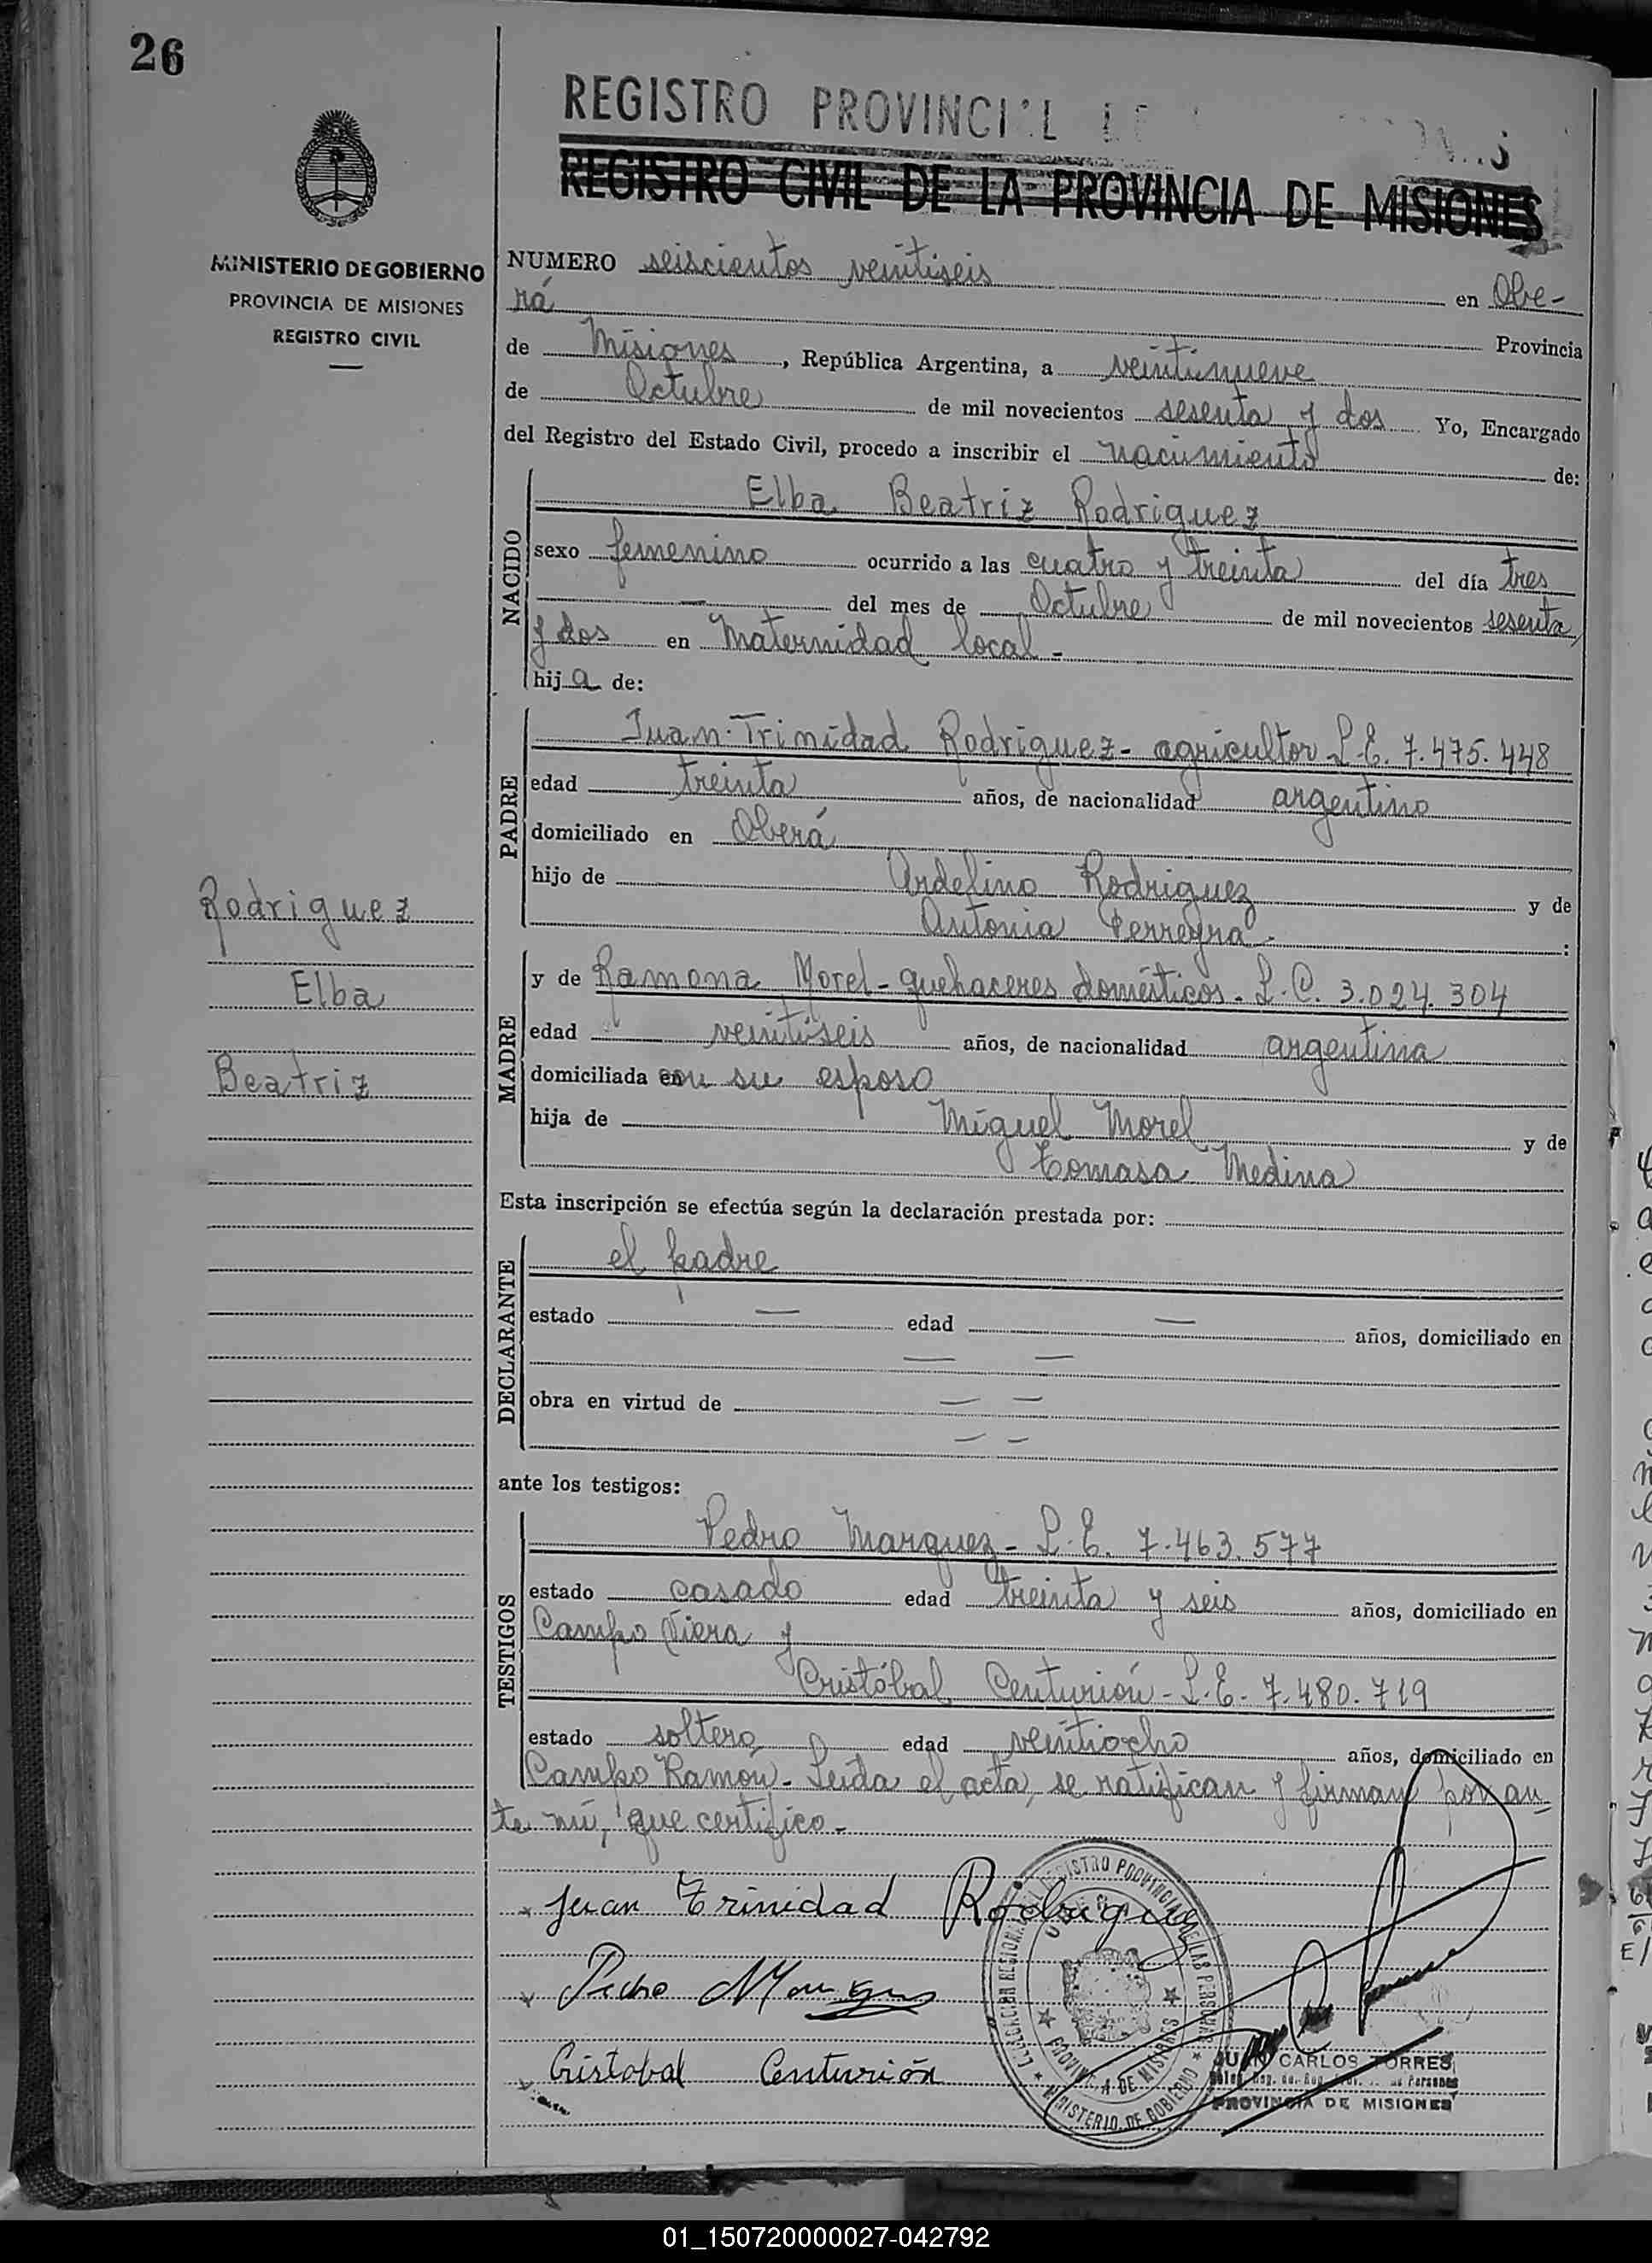 26
REGISTRO PROVINCI L
REGISTRO CIVIL DE LA PROVINCIA DE MISIONES
MINISTERIO DE GOBIERNO
PROVINCIA DE MISIONES
REGISTRO CIVIL
NUMERO seiscientos veintiseis en Obe-
rá Provincia
de Misiones, República Argentina, a veintinueve
de Octubre de mil novecientos sesenta y dos Yo, Encargado
del Registro del Estado Civil, procedo a inscribir el nacimiento de:
NACIDO
Elba Beatriz Rodriguez
sexo femenino ocurrido a las cuatro y treinta del día tres
— del mes de Octubre de mil novecientos sesenta
y dos en Maternidad local -
hij a de:
PADRE
Juan Trinidad Rodriguez - agricultor L.E. 7.475.448
edad treinta años, de nacionalidad argentino
domiciliado en Oberá
hijo de Ardelino Rodriguez y de
Antonia Ferreyra :
MADRE
y de Ramona Morel - quehaceres domésticos - L.C. 3.024.304
edad veintiseis años, de nacionalidad argentina
domiciliada con su esposo
hija de Miguel Morel y de
Tomasa Medina
Rodriguez
Elba
Beatriz
Esta inscripción se efectúa según la declaración prestada por:
DECLARANTE
el padre
estado — edad — años, domiciliado en
— —
obra en virtud de — —
— —
ante los testigos:
TESTIGOS
Pedro Marquez - L.E. 7.463.577
estado casado edad treinta y seis años, domiciliado en
Campo Viera y
Cristóbal Centurión - L.E. 7.480.719
estado soltero edad veintiocho años, domiciliado en
Campo Ramón - Leida el acta, se ratifican y firman por an-
te mí, que certifico -
Juan Trinidad Rodriguez
Pedro Marquez
Cristobal Centurión
MINISTERIO DE GOBIERNO
PROVINCIA DE MISIONES
JUAN CARLOS TORRES
PROVINCIA DE MISIONES
01_150720000027-042792